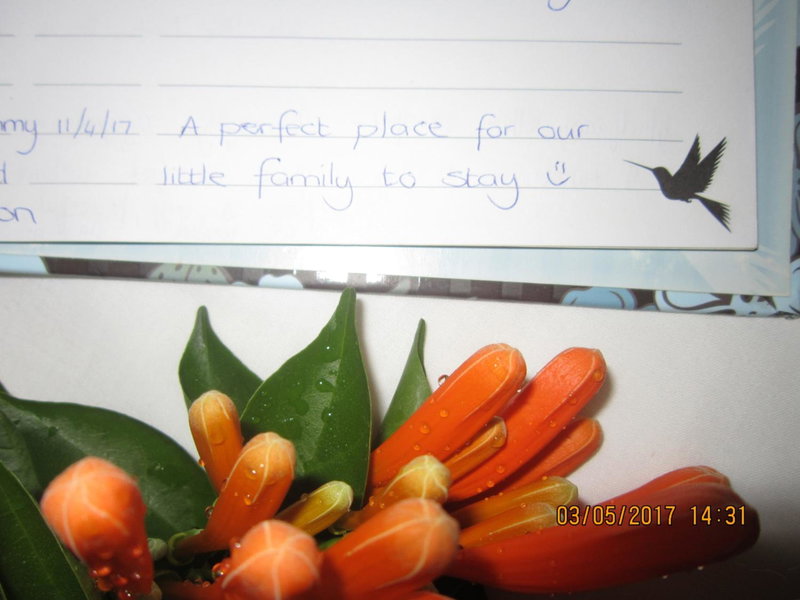 my 11/4/17 A perfect place for our
little family to stay
on
03/05/2017 14:31